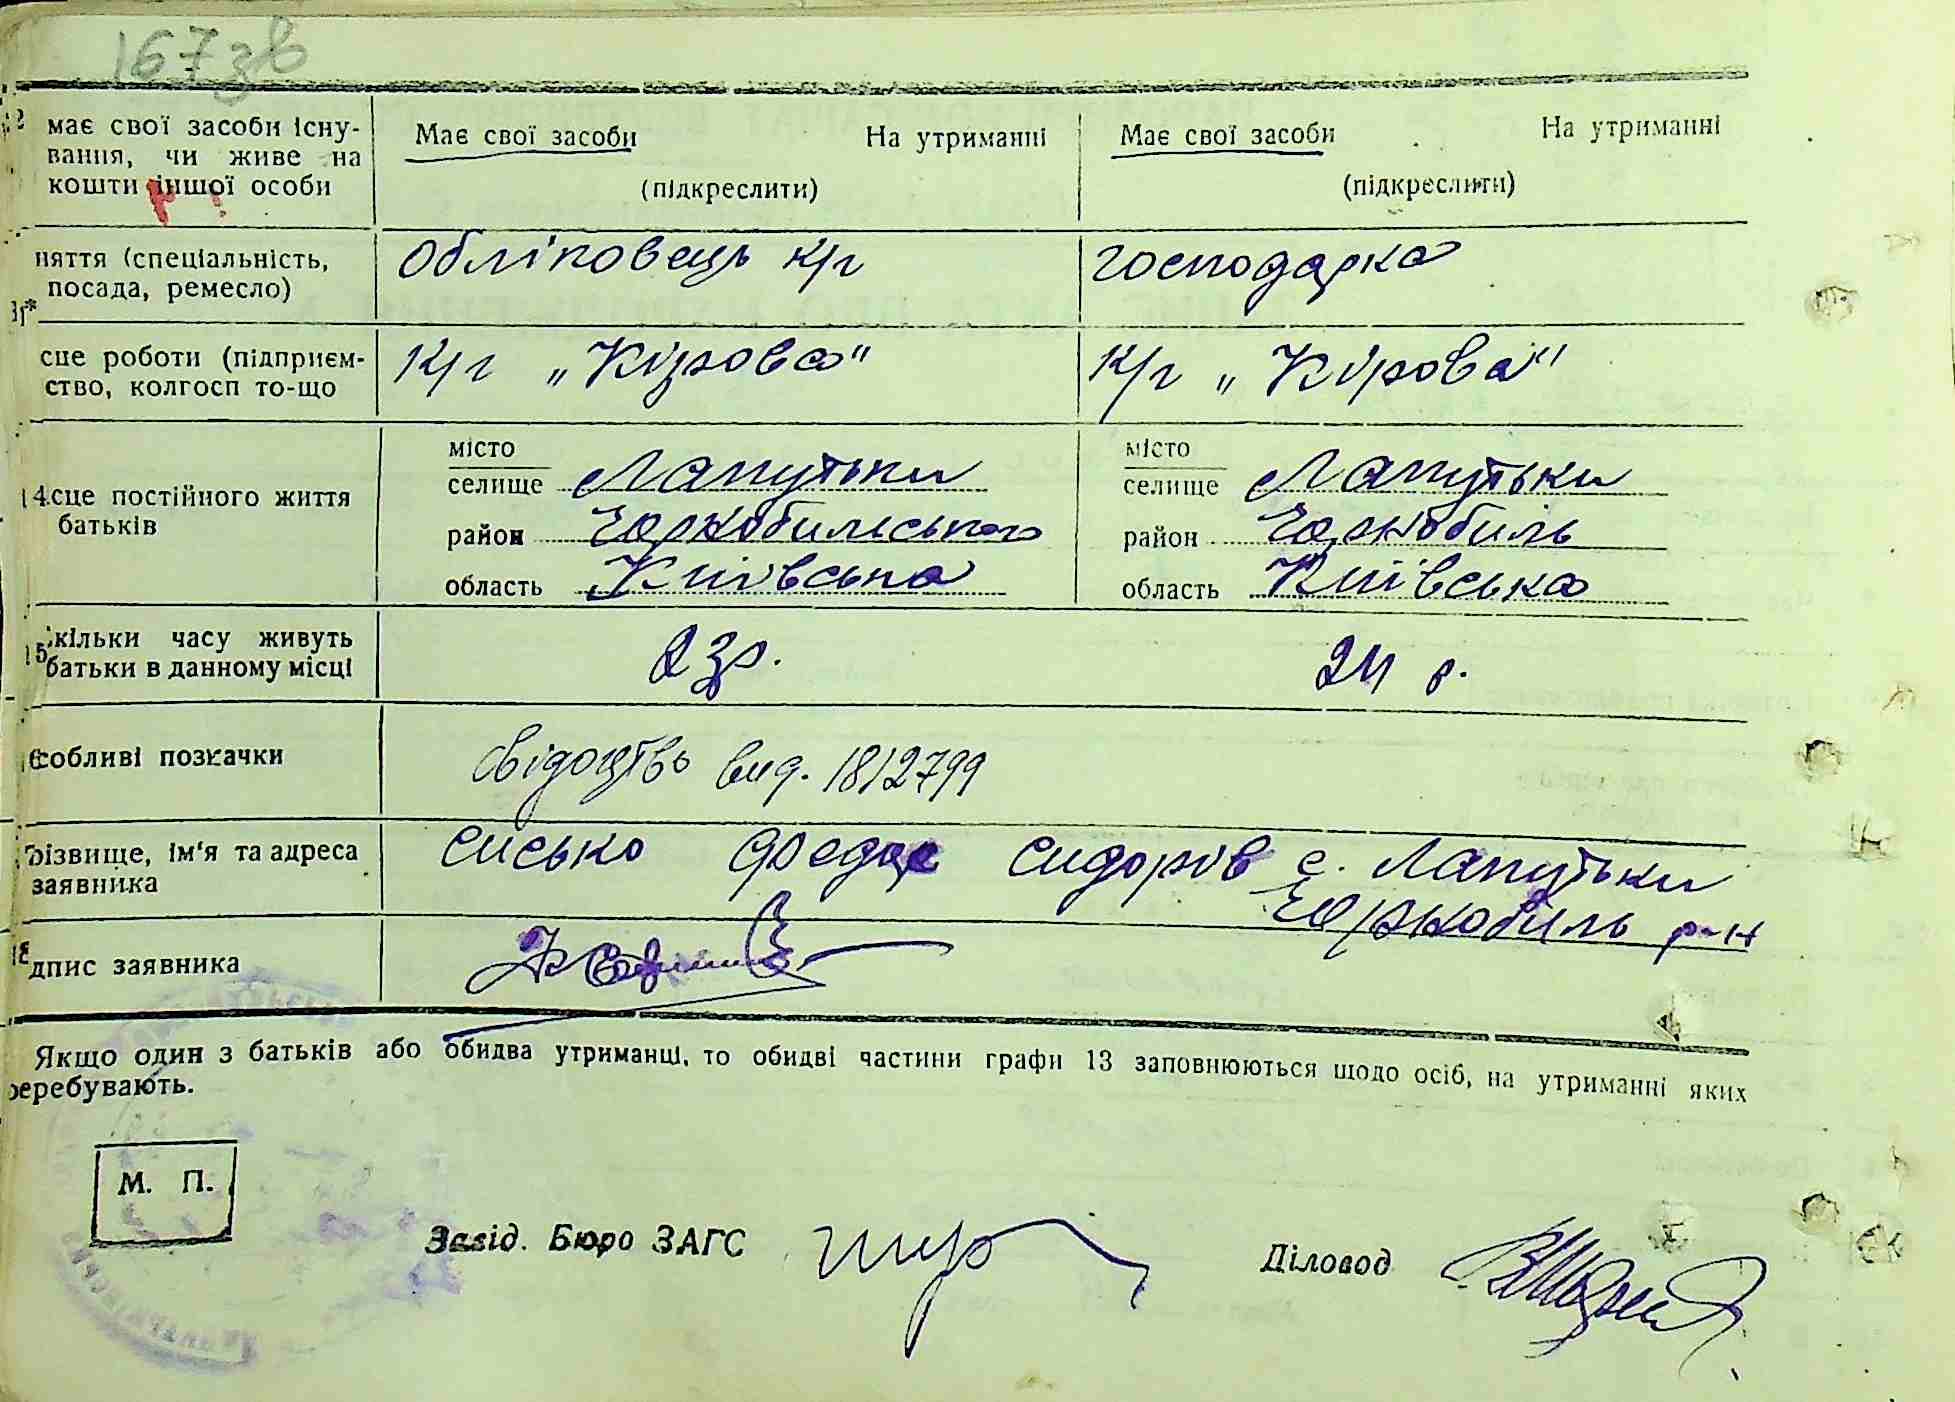 167зв
12 має свої засоби існу-
вання, чи живе на
кошти іншої особи
Має свої засоби На утриманні
(підкреслити)
Має свої засоби На утриманні
(підкреслити)
няття (спеціальність,
посада, ремесло)
Обліповець к/г
господарка
сце роботи (підприєм-
ство, колгосп то-що
К/г „Кірова"
К/г „Кірова"
14. сце постійного життя
батьків
місто
селище Лапутьки
район Чорнобильського
область Київська
місто
селище Лапутьки
район Чорнобиль
область Київська
15 кільки часу живуть
батьки в данному місці
23р.
24 р.
собливі позначки
Свідоцтво вид. 1812799
різвище, ім'я та адреса
заявника
Сисько Федор Сидорів с. Лапутьки
Чорнобиль р-н
18 дпис заявника
Якщо один з батьків або обидва утриманці, то обидві частини графи 13 заповнюються щодо осіб, на утриманні яких
перебувають.
М. П.
Завід. Бюро ЗАГС
Діловод